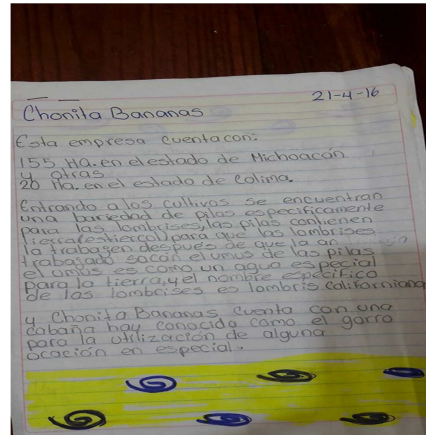 21-4-16
Chonita Bananas
Esta empresa cuenta con:
155 Ha. en el estado de Michoacán
y otras
20 Ha. en el estado de Colima.
Entrando a los cultivos se encuentran
una bariedad de pilas especificamente
para las lombrises, las pilas contienen
tierra (estiercol) para que las lombrises
la trabajen despues de que la an
trabajado sacan el umus de las pilas
el umus es como un agua especial
para la tierra, y el nombre especifico
de las lombrises es lombris californiana
y Chonita Bananas cuenta con una
cabaña hay conocida como el garro
para la utilización de alguna
ocación en especial.